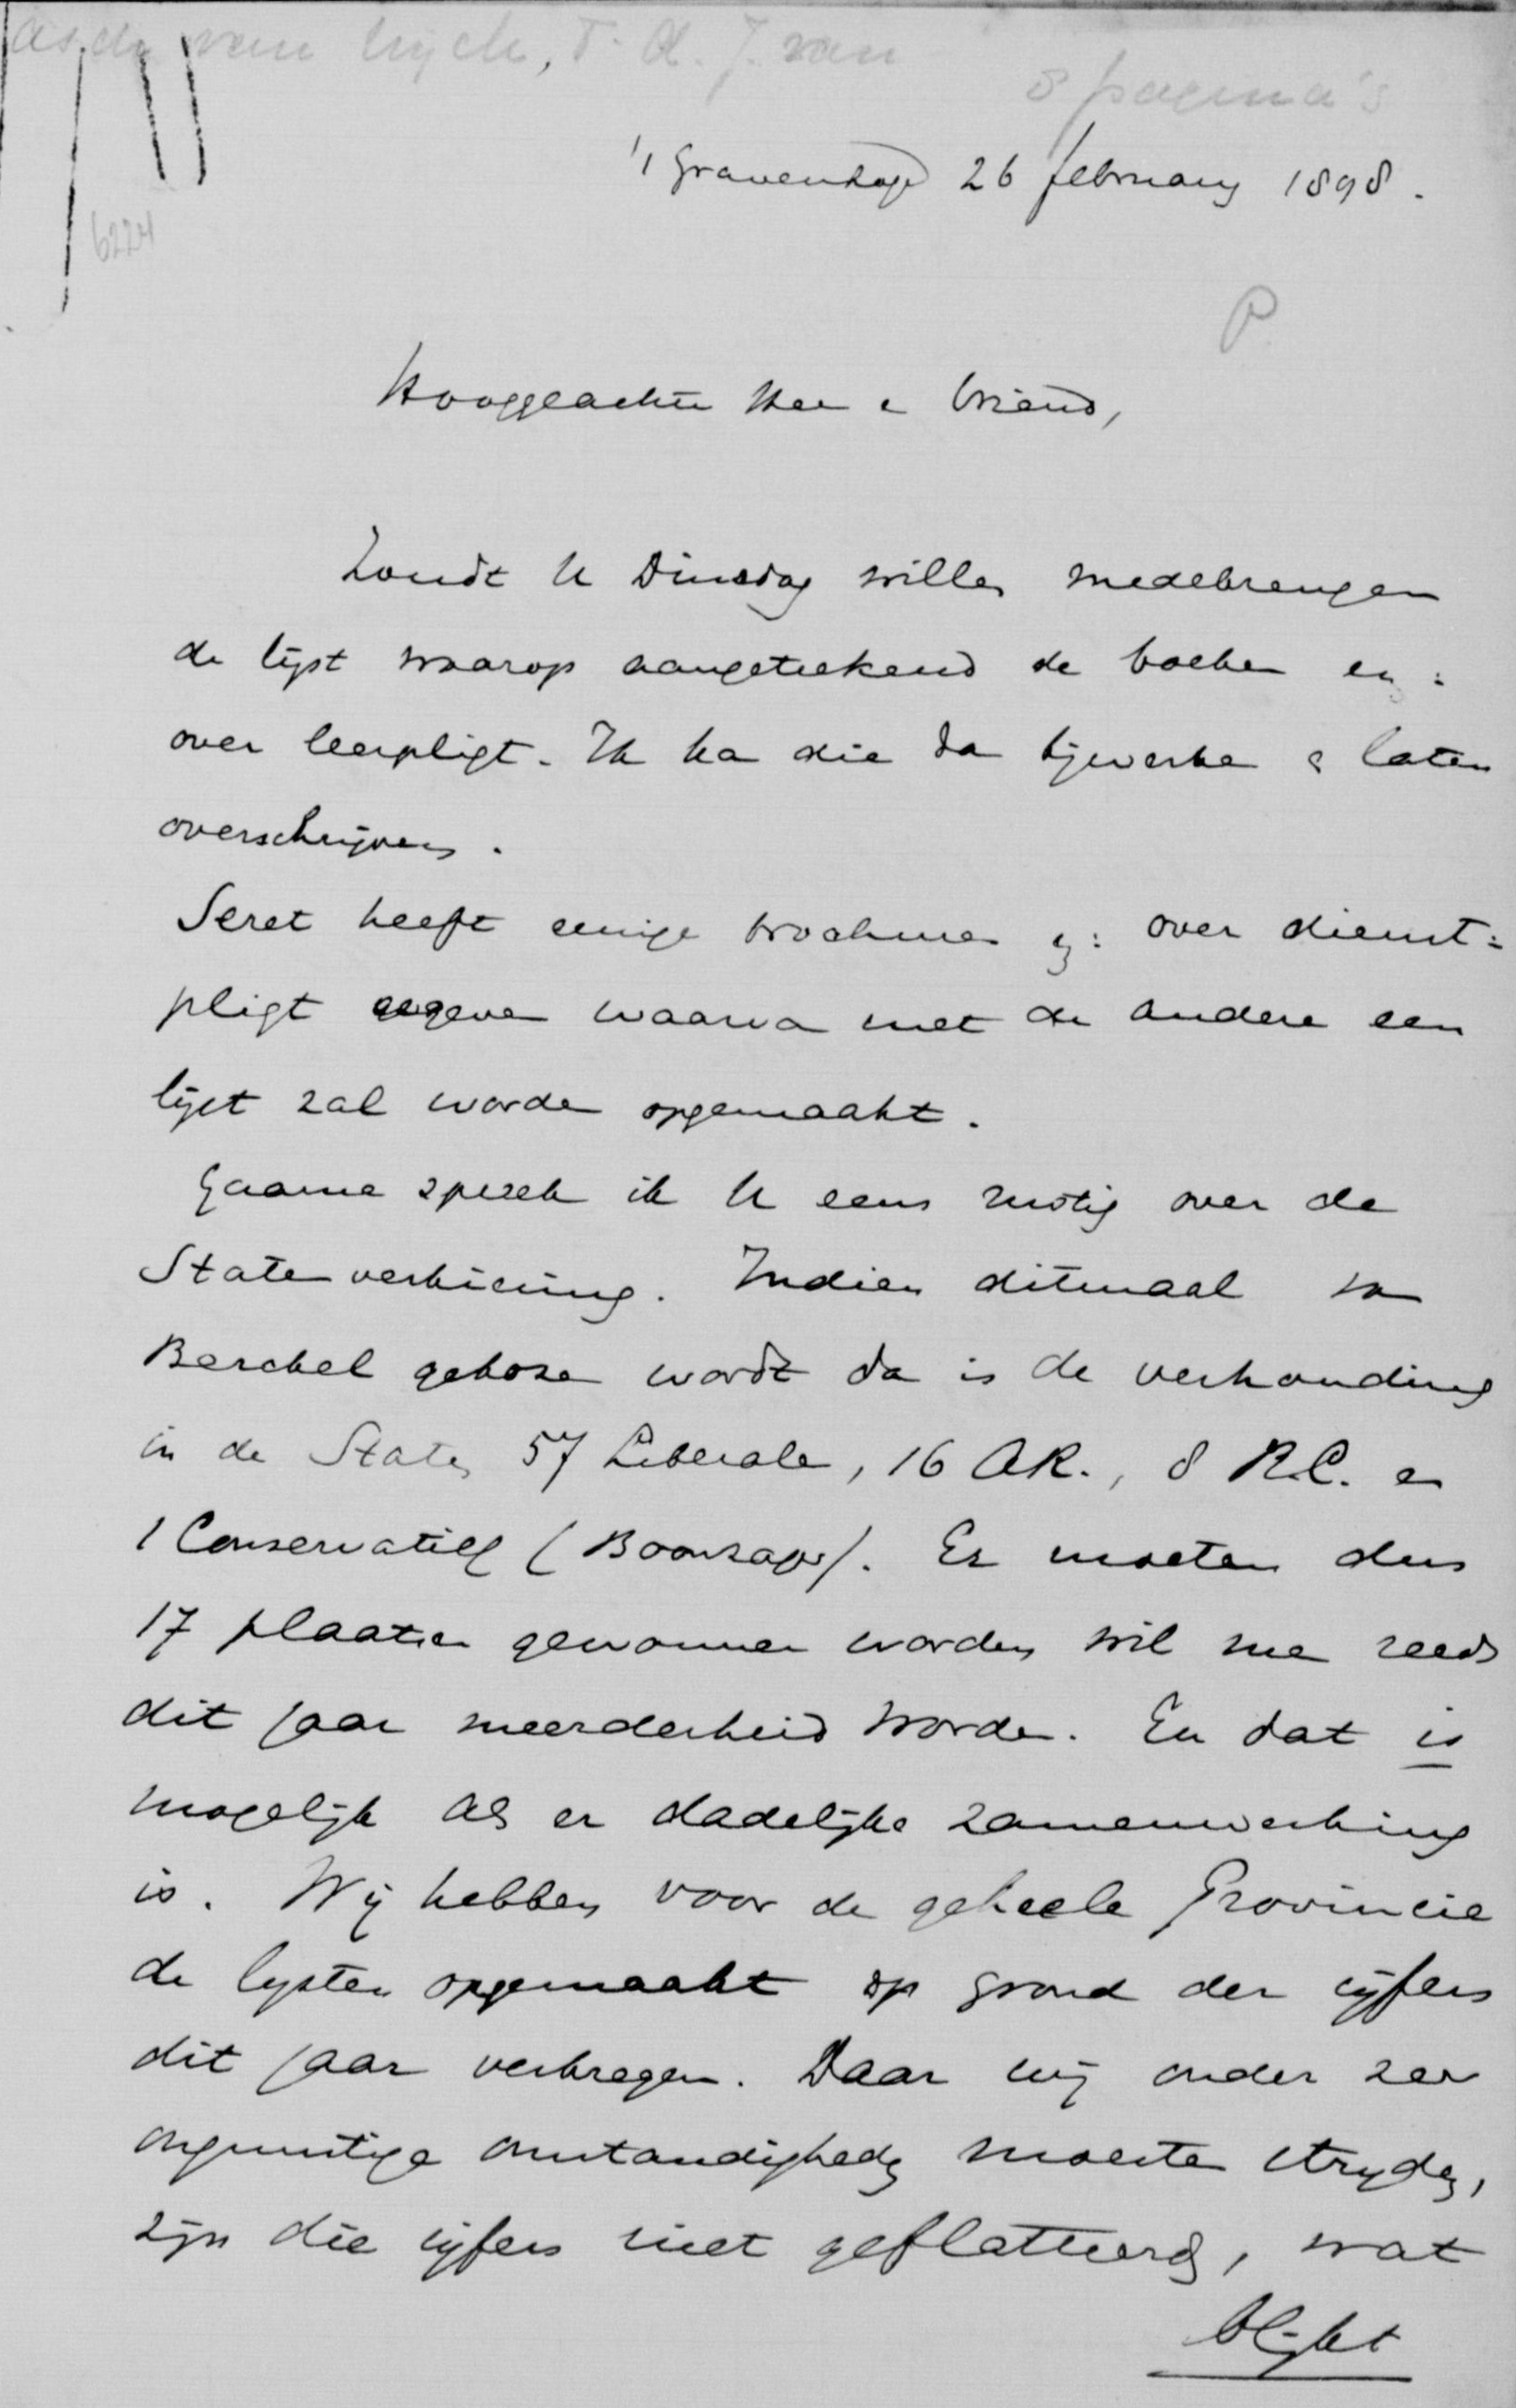 van Wijck, T. A. J. van
8 pagina's
's Gravenhage 26 february 1898.
6224
P
Hooggeachte Heer e vriend,
Zoudt U Dinsdag willen medebrengen
de lijst waarop aangeteekend de boeken en:
over leerpligt. Ik ka die da bijwerke e laten
overschrijven.
Seret heeft eenige brochures en: over dienst=
pligt gegeven waarva met de andere een
lijst zal worde opgemaakt.
Gaarne spreek ik U eens rustig over de
Statenverkiezing. Indien ditmaal van
Berckel gekoze wordt da is de verhouding
in de Staten 57 Liberale, 16 AR., 8 R.C. en
1 Conservatief (Boonzajer). Er moeten dus
17 plaatsen gewonnen worden wil me reeds
dit jaar meerderheid worde. En dat is
mogelijk als er dadelijke zamenwerking
is. Wij hebben voor de geheele Provincie
de lysten opgemaakt op grond der cijfers
dit jaar verkregen. Daar wij onder zeer
ongunstige omstandigheden moesten stryden,
zijn die cijfers niet geflatteerd, wat
blijkt